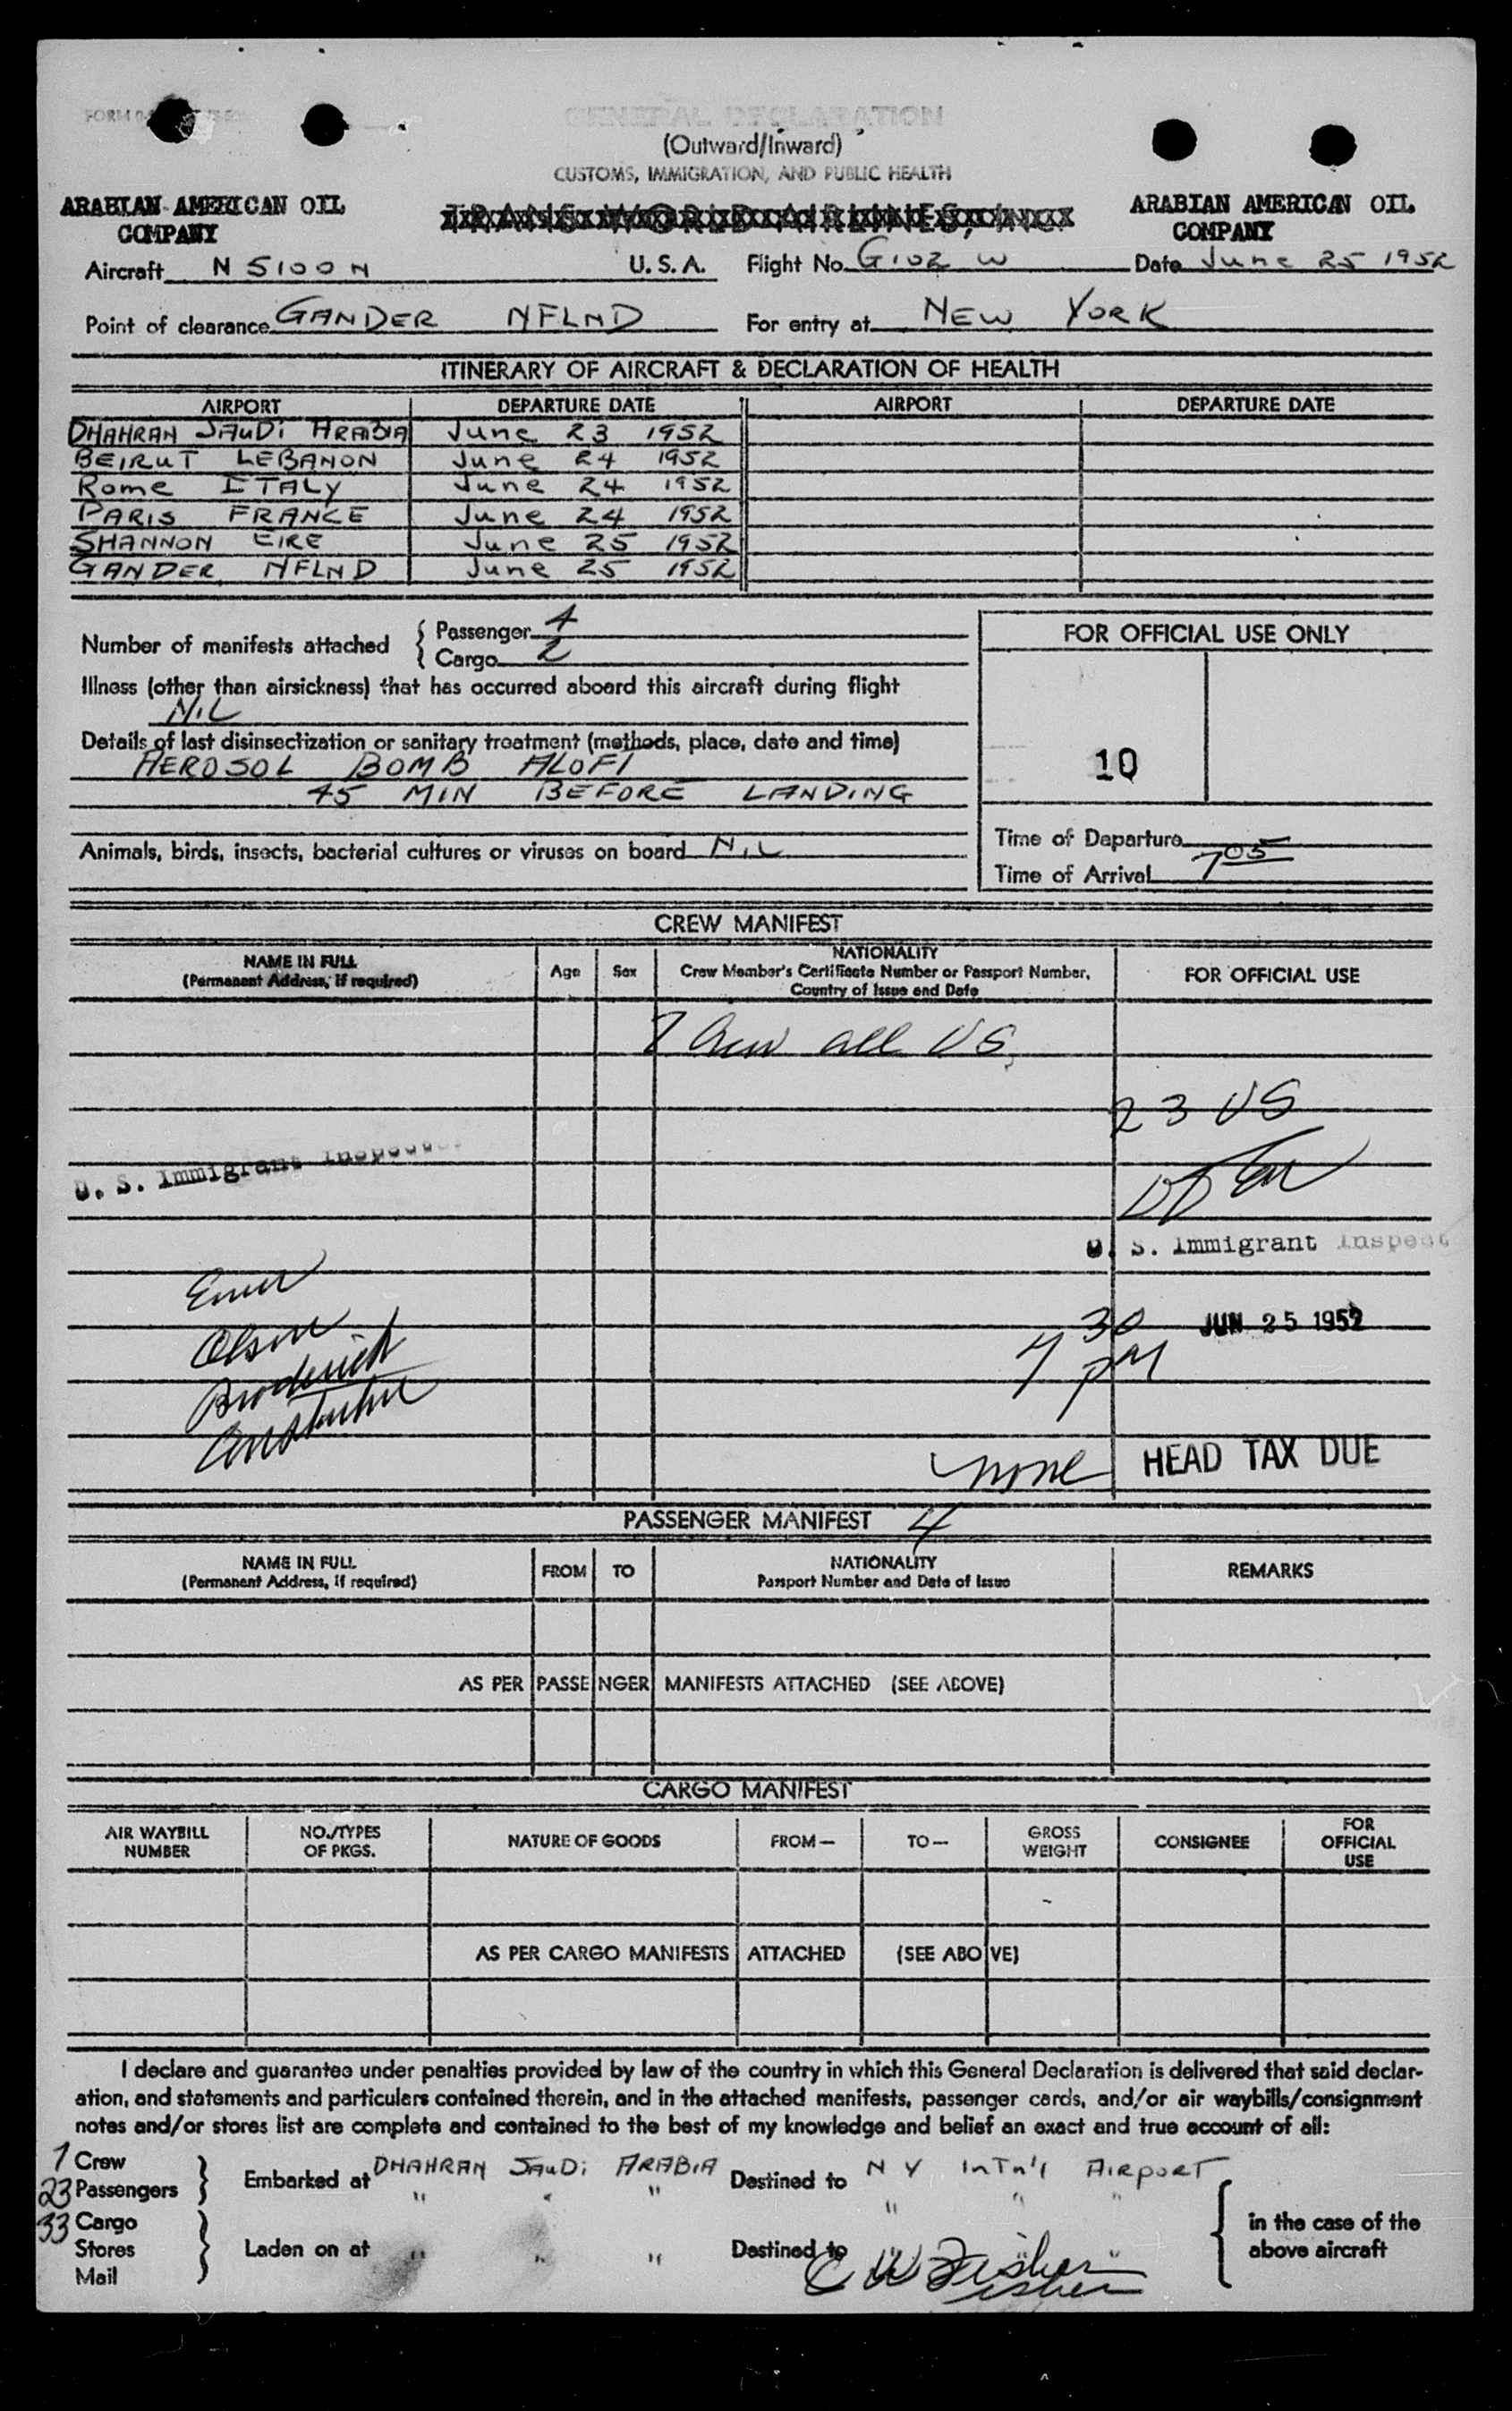 GENERAL DECLARATION
(Outward/Inward)
CUSTOMS, IMMIGRATION, AND PUBLIC HEALTH
ARABIAN AMERICAN OIL COMPANY
TRANS WORLD AIRLINES, INC.
ARABIAN AMERICAN OIL COMPANY
Aircraft N5100N U.S.A. Flight No. G102 W Date June 25 1952
Point of clearance GANDER NFLND For entry at NEW YORK
ITINERARY OF AIRCRAFT & DECLARATION OF HEALTH
AIRPORT DEPARTURE DATE AIRPORT DEPARTURE DATE
DHAHRAN SAUDI ARABIA June 23 1952
BEIRUT LEBANON June 24 1952
Rome ITALY June 24 1952
PARIS FRANCE June 24 1952
SHANNON EIRE June 25 1952
GANDER NFLND June 25 1952
Number of manifests attached { Passenger 4
Cargo 2
FOR OFFICIAL USE ONLY
Illness (other than airsickness) that has occurred aboard this aircraft during flight
NIL
Details of last disinsectization or sanitary treatment (methods, place, date and time)
AEROSOL BOMB ALOFT
45 MIN BEFORE LANDING
10
Animals, birds, insects, bacterial cultures or viruses on board NIL
Time of Departure
Time of Arrival 7 05
CREW MANIFEST
NAME IN FULL
(Permanent Address, if required)
Age Sex
NATIONALITY
Crew Member's Certificate Number or Passport Number,
Country of Issue and Date
FOR OFFICIAL USE
7 Crew all US
23 US
U. S. Immigrant Inspector
U. S. Immigrant Inspect
Olson
Broderick
7 30 PM
JUN 25 1952
none HEAD TAX DUE
PASSENGER MANIFEST 4
NAME IN FULL
(Permanent Address, if required)
FROM TO
NATIONALITY
Passport Number and Date of Issue
REMARKS
AS PER PASSENGER MANIFESTS ATTACHED (SEE ABOVE)
CARGO MANIFEST
AIR WAYBILL NUMBER
NO./TYPES OF PKGS.
NATURE OF GOODS
FROM—
TO—
GROSS WEIGHT
CONSIGNEE
FOR OFFICIAL USE
AS PER CARGO MANIFESTS ATTACHED (SEE ABOVE)
I declare and guarantee under penalties provided by law of the country in which this General Declaration is delivered that said declar-
ation, and statements and particulars contained therein, and in the attached manifests, passenger cards, and/or air waybills/consignment
notes and/or stores list are complete and contained to the best of my knowledge and belief an exact and true account of all:
7 Crew
23 Passengers } Embarked at DHAHRAN SAUDI ARABIA Destined to N Y InTn'l AIRPORT
" " " " " "
33 Cargo
Stores } Laden on at " " " Destined to " " "
Mail
in the case of the
above aircraft
C W Fisher